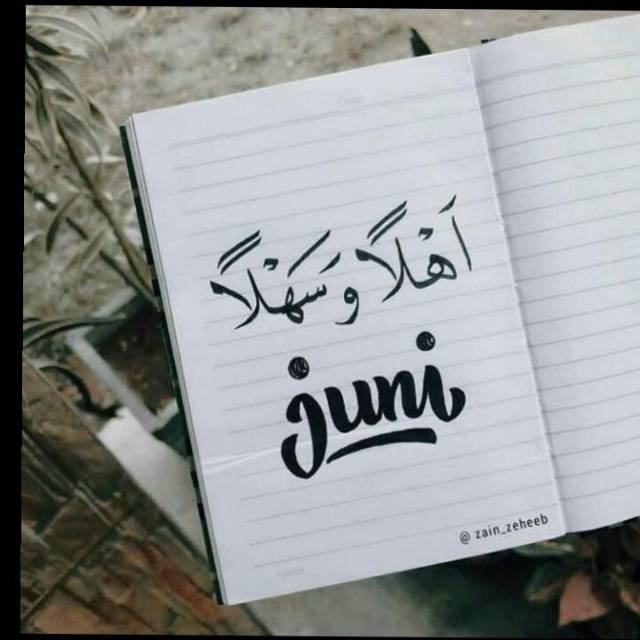 أَهْلًا وَ سَهْلًا
juni
@ zain_zeheeb